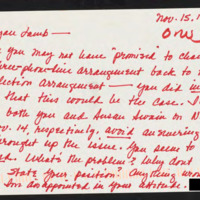 Nov. 15. 1
gan Lamb —
you may not have "promised" to cha
ree-phone-line arrangement back to
lection arrangement — you did
that this would be the case.
both you and Susan Swain on N
v. 14, respectively, avoid answering
rought up the issue. You seem to
d. What's the problem? Why dont
State your position? Anything wro
I'm disappointed in your attitude.